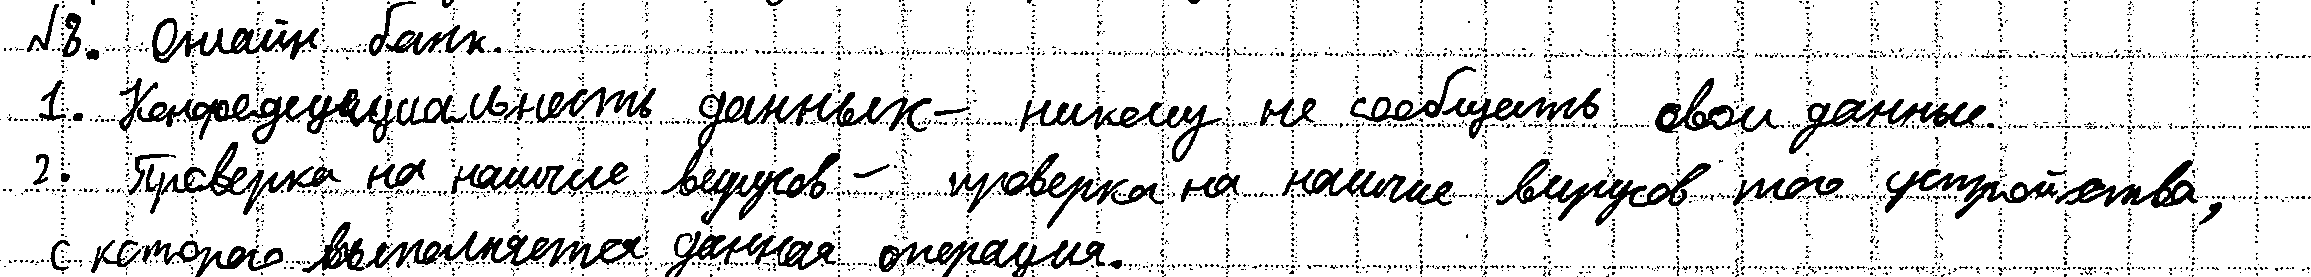 №8. Онлайн банк.
1. Конфедециальность данных – никому не сообщать свои данные.
2. Проверка на наличие вирусов – проверка на наличие вирусов того устройства,
с которого выполняется данная операция.